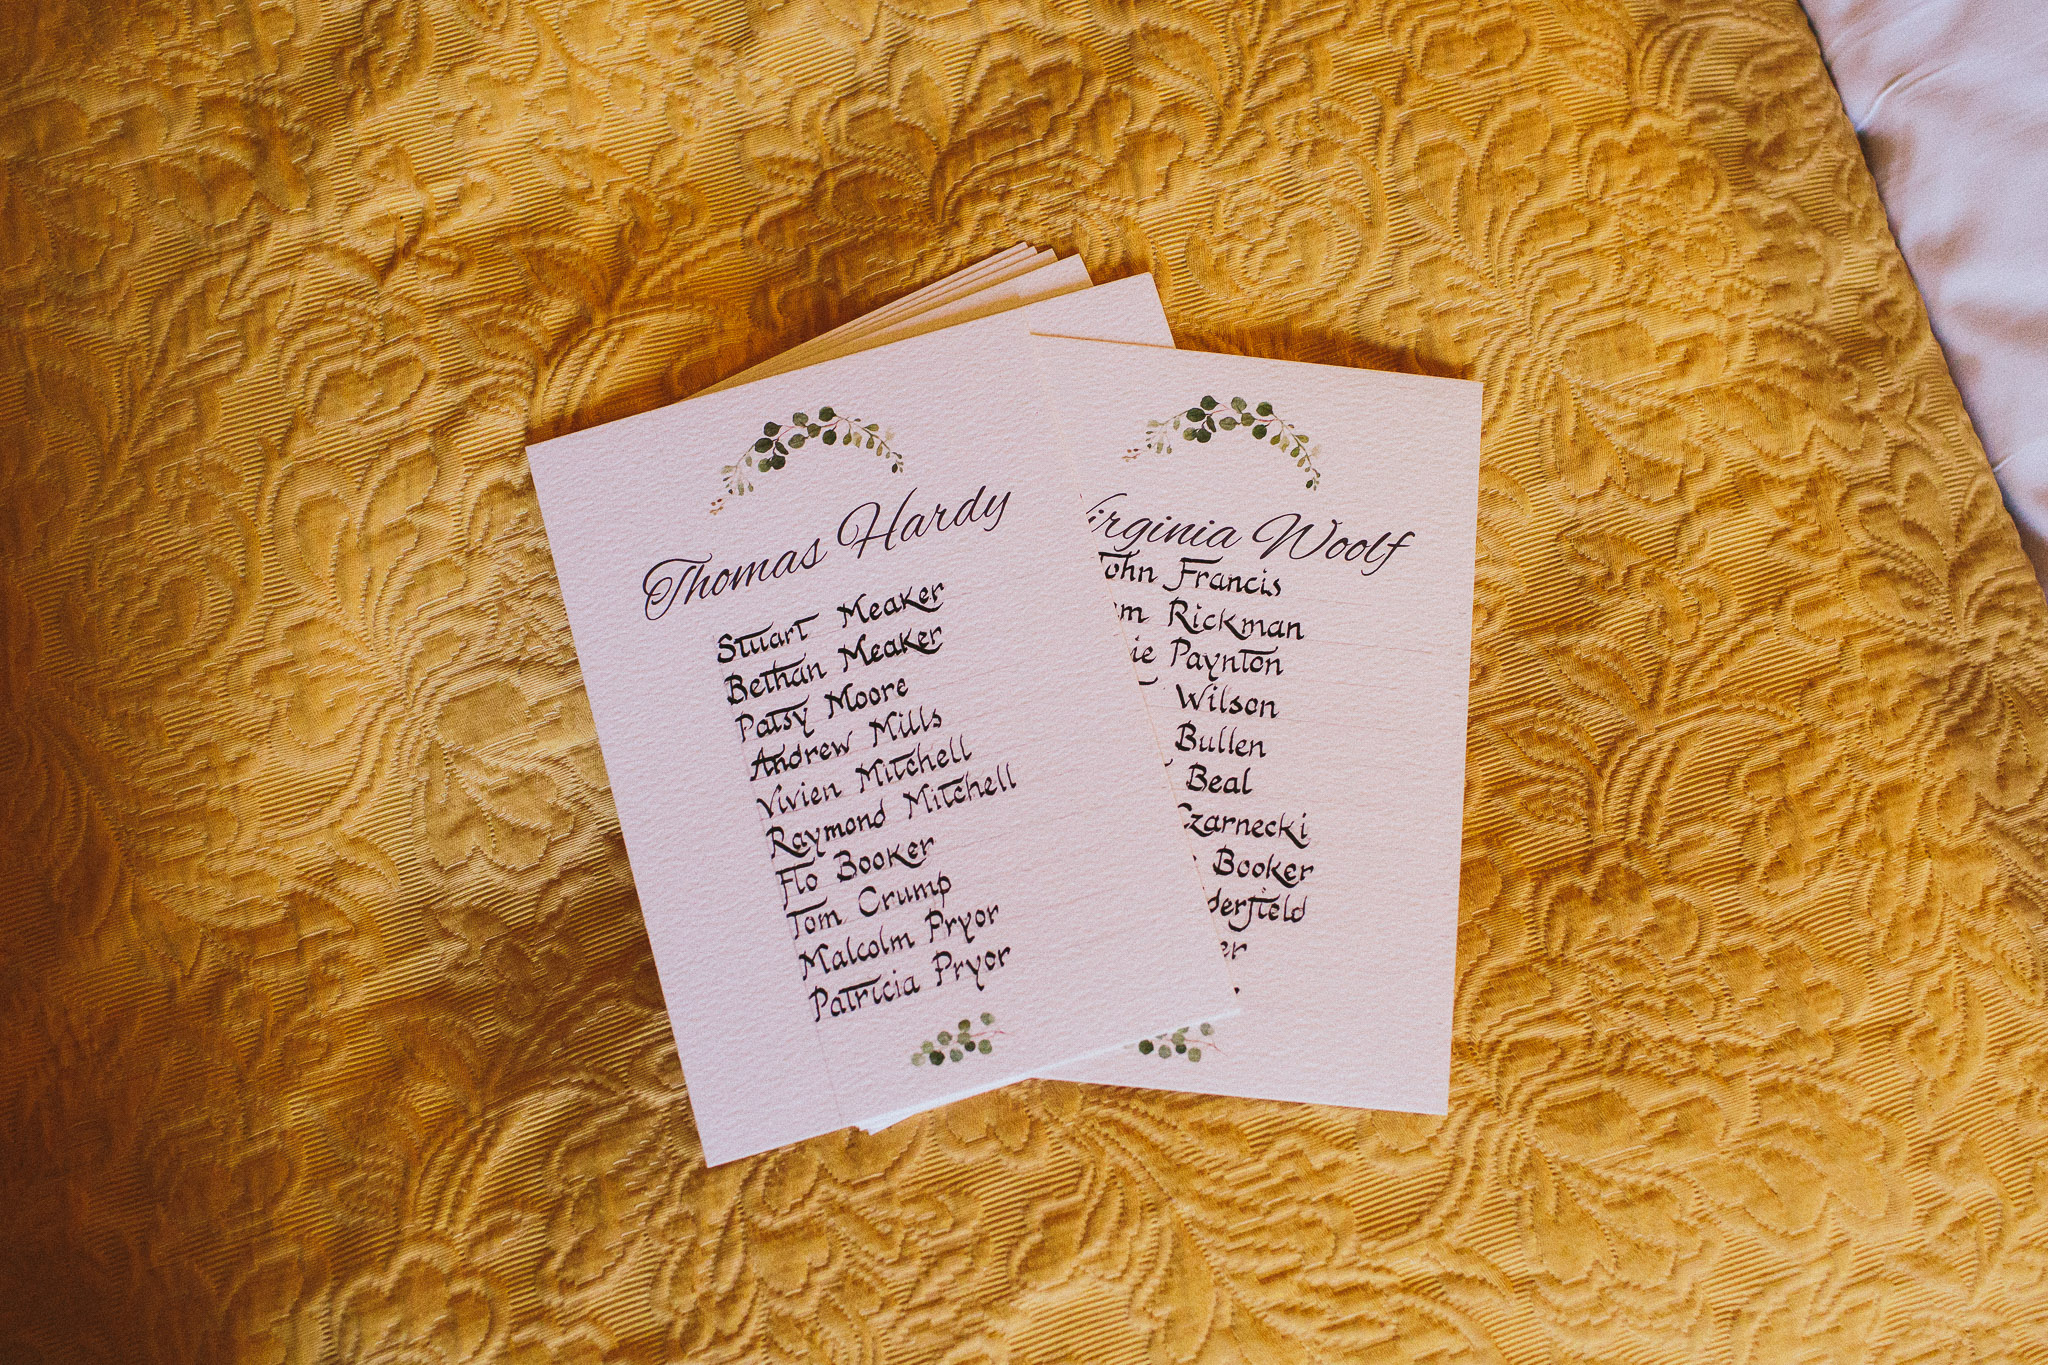 Thomas Hardy
Stuart Meaker
Bethan Meaker
Patsy Moore
Andrew Mills
Vivien Mitchell
Raymond Mitchell
Flo Booker
Tom Crump
Malcolm Pryor
Patricia Pryor
Virginia Woolf
John Francis
Rickman
Paynton
Wilson
Bullen
Beal
Czarnecki
Booker